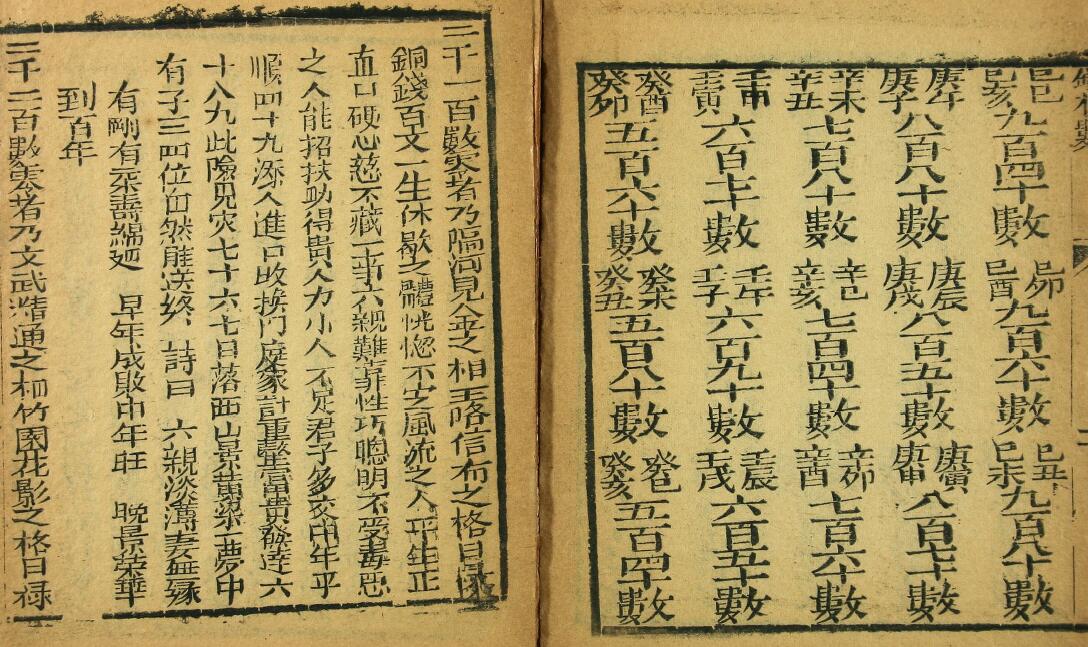 己巳己亥九百四十數 己卯己酉九百六十數 己丑己未九百八十數
庚午庚子八百八十數 庚辰庚戌八百五十數 庚寅庚申八百七十數
辛未辛丑七百八十數 辛巳辛亥七百四十數 辛卯辛酉七百六十數
壬申壬寅六百七十數 壬午壬子六百九十數 壬辰壬戌六百五十數
癸酉癸卯五百六十數 癸未癸丑五百八十數 癸巳癸亥五百四十數
三千一百數零者乃隔河見金之相玉 信布之格日
銅錢百文一生休歇之體恍惚不定風流之人平生正
血口硬心慈不藏一事六親難靠性巧聰明不受毒惡
之人能招扶助得貴人力小人不足君子多交中年平
順四十九添人進口改換門庭家計重整富貴發達六
十八九此險見灾七十六七日落西山景黃粱一夢中
有子三四位自然能送終 詩曰 六親淡薄妻無緣
有剛有柔壽綿延 早年成敗中年旺 晚景榮華
到百年
三千二百數零者乃文武精通之相竹園花影之格日禄